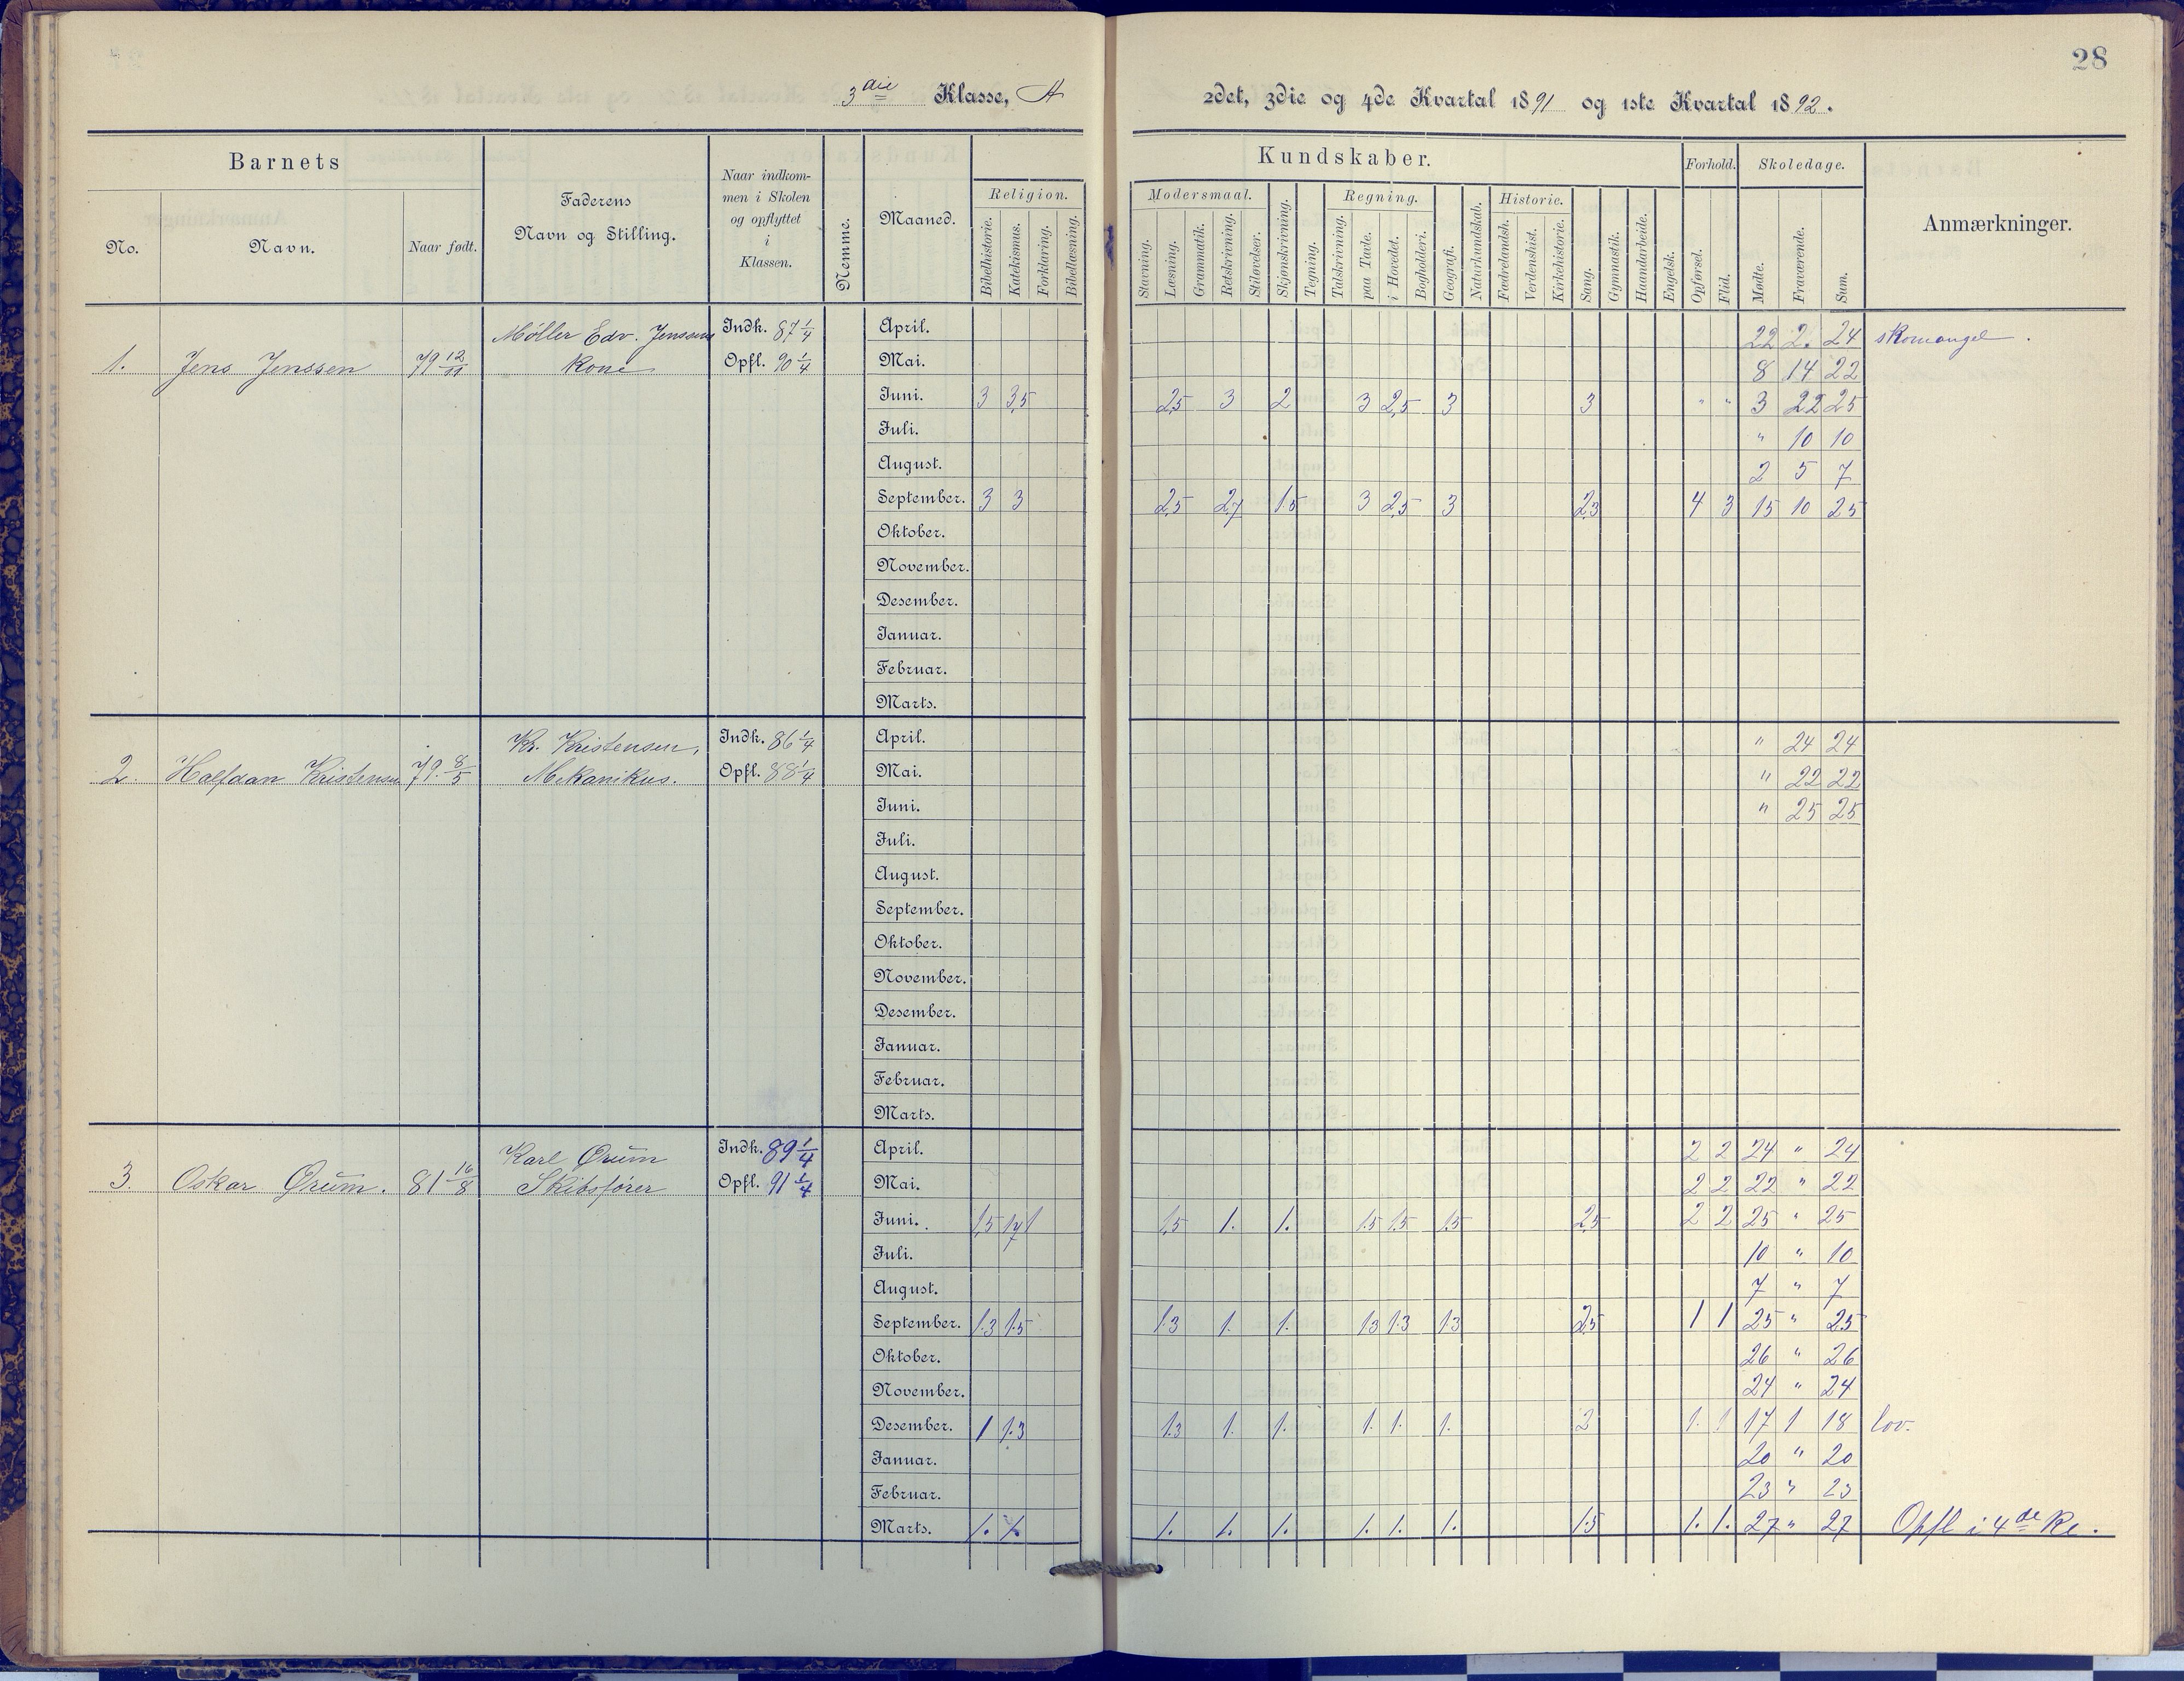 28
3die Klasse, A
2det, 3die og 4de Kvartal 1891 og 1ste Kvartal 1892.
Barnets
No.
Navn.
Naar født.
Faderens
Navn og Stilling.
Naar indkom-
men i Skolen
og opflyttet
i
Klassen.
Nemme.
Maaned.
Kundskaber.
Religion.
Bibelhistorie.
Katekismus.
Forklaring.
Bibellæsning.
Modersmaal.
Stavning.
Læsning.
Grammatik.
Retskrivning.
Stiløvelser.
Skjønskrivning.
Tegning.
Regning.
Talskrivning.
paa Tavle.
i Hovedet.
Bogholderi.
Geografi.
Naturkundskab.
Historie.
Fædrelandsh.
Verdenshist.
Kirkehistorie.
Sang.
Gymnastik.
Haandarbeide.
Engelsk.
Forhold.
Opførsel.
Flid.
Skoledage.
Mødte.
Fraværende.
Sum.
Anmærkninger.
1. Jens Jenssen 79 12/11
Møller Edv. Jenssens
Kone
Indk. 87 1/4
Opfl. 90 1/4
April. 22 2. 24 skomangel.
Mai. 8 14 22
Juni. 3 3,5 2,5 3 2 3 2,5 3 3 " " 3 22 25
Juli. " 10 10
August. 2 5 7
September. 3 3 2,5 2,7 1.5 3 2,5 3 2,3 4 3 15 10 25
Oktober.
November.
Desember.
Januar.
Februar.
Marts.
2. Halfdan Kristensen 79. 8/5
Kr. Kristensen,
Mekanikus.
Indk. 86 1/4
Opfl. 88 1/4
April. " 24 24
Mai. " 22 22
Juni. " 25 25
Juli.
August.
September.
Oktober.
November.
Desember.
Januar.
Februar.
Marts.
3. Oskar Ørum. 81 16/8
Karl Ørum
Skibsfører
Indk. 89 1/4
Opfl. 91 1/4
April. 2 2 24 " 24
Mai. 2 2 22 " 22
Juni. 1,5 1,7 1,5 1. 1. 1.5 1.5 1.5 2,5 2 2 25 " 25
Juli. 10 " 10
August. 7 " 7
September. 1.3 1.5 1.3 1. 1. 1.3 1.3 1.3 2,5 1 1 25 " 25
Oktober. 26 " 26
November. 24 " 24
Desember. 1 1.3 1.3 1. 1. 1. 1. 1. 2 1. 1 17 1 18 lov.
Januar. 20 " 20
Februar. 23 " 23
Marts. 1. 1. 1. 1. 1. 1. 1. 1. 1.5 1. 1. 27 " 27 Opfl i 4de Kl.